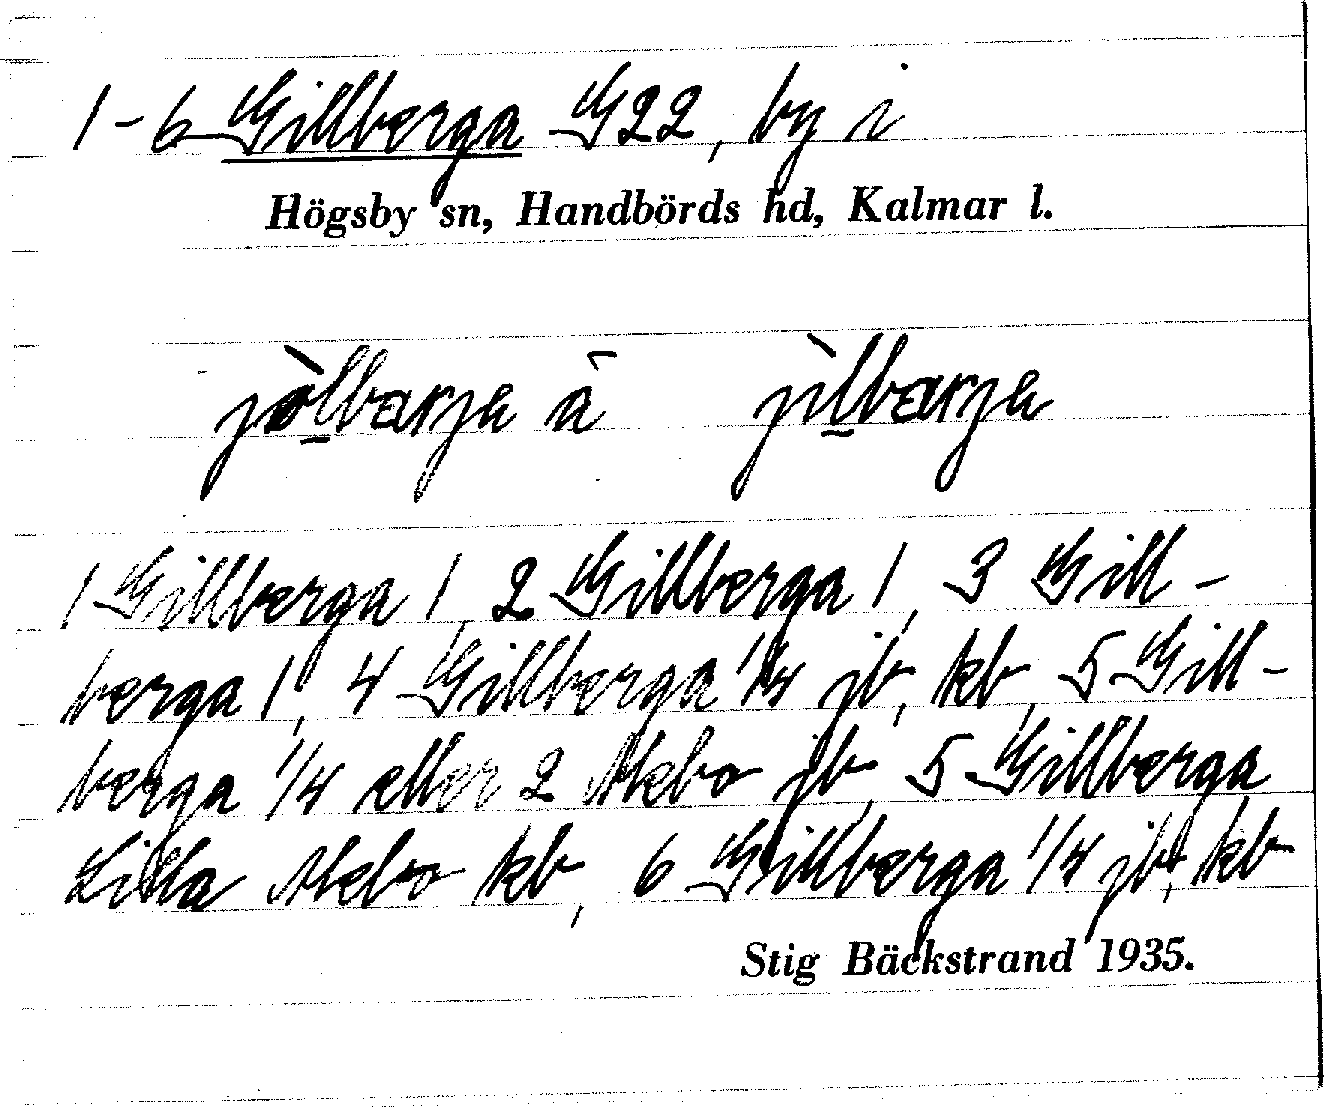 1-6 Gillberga G22, by i
Högsby sn, Handbörds hd, Kalmar l.
jòlbærja â jìlbærja
1 Gillberga 1, 2 Gillberga 1, 3 Gill-
berga 1, 4 Gillberga 1/4 jb, kb, 5 Gill-
berga 1/4 eller 2 Mebo jb, 5 Gillberga
Lilla Mebo kb, 6 Gillberga 1/4 jb, kb
Stig Bäckstrand 1935.